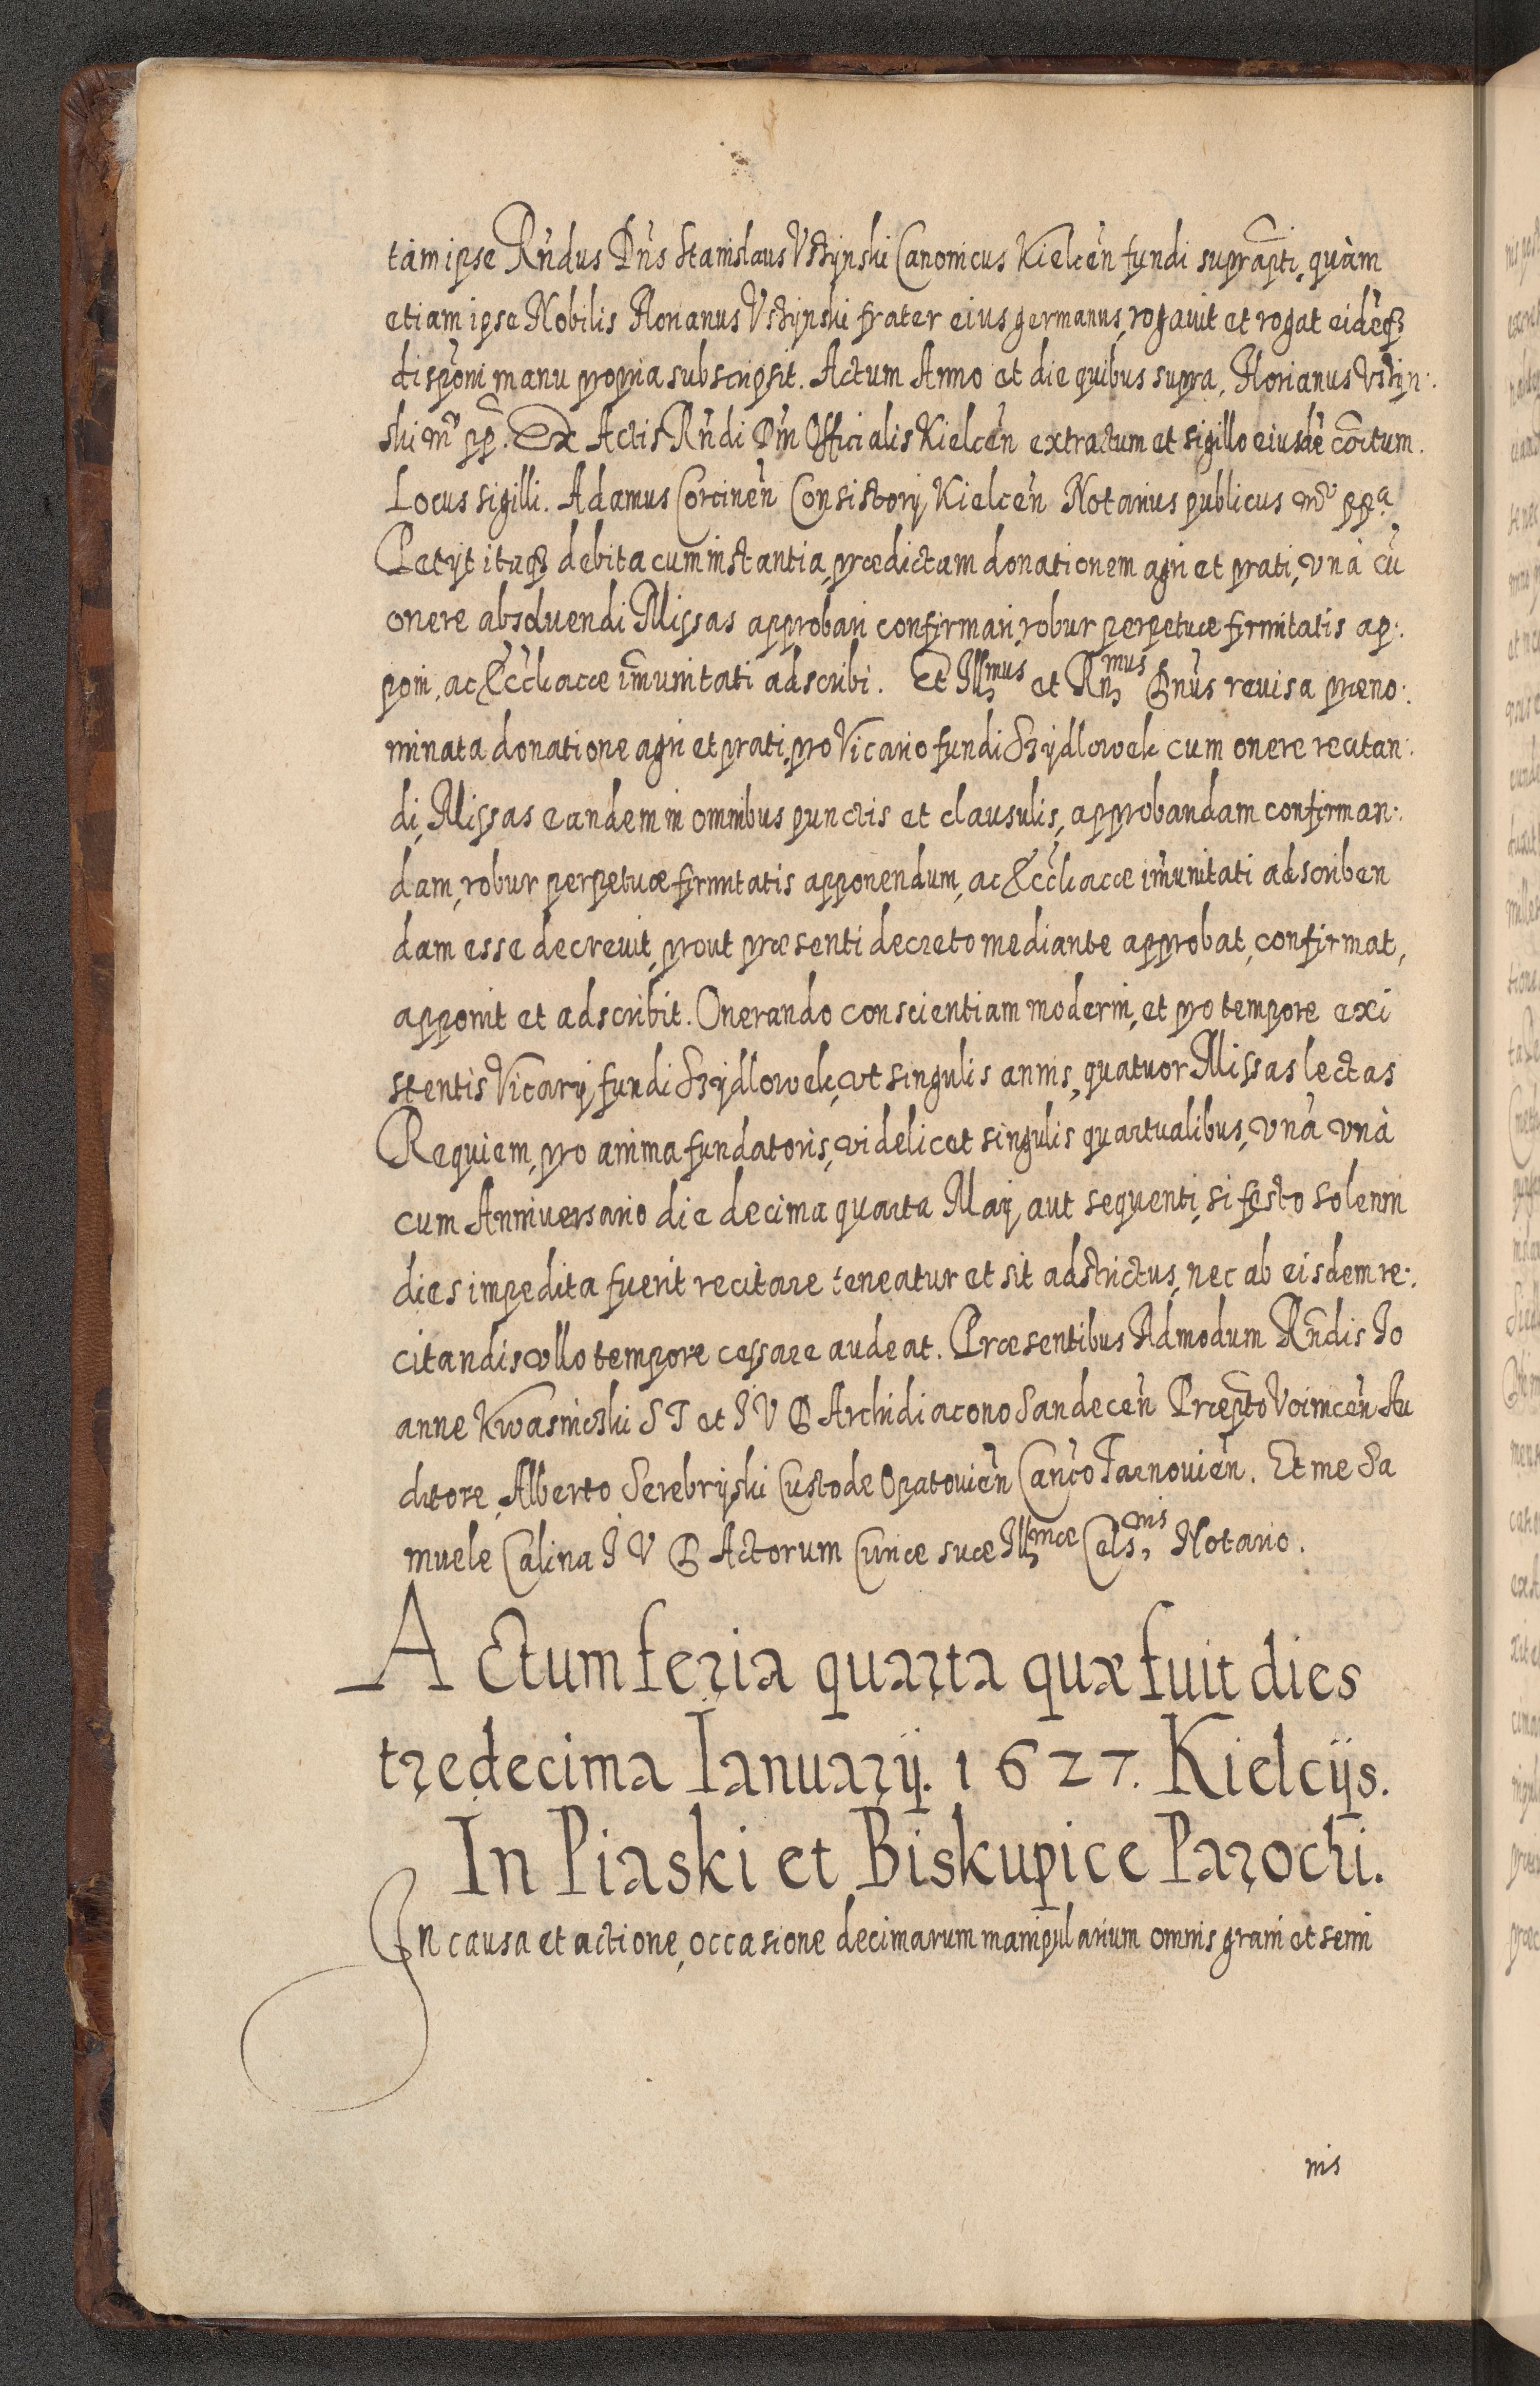 tàm ipse Rńdus Dńs Stanislaus Vstÿnski Canonicus Kielceń fundi suprapti, quàm
etiam ipse Nobilis Florianus Vstÿnski frater eius germanus, rogauit et rogat eideqз
dispoñi manu propria subscripsit. Actum Anno et die quibus supra, Florianus Vstÿn:
ski m̃ pp̃. Ex Actis Rńdi Dńi Officialis Kielceń extractum et sigillo eiusdẽ cõitum.
Locus sigilli. Adamus Corcineń Consistorÿ Kielceń Notarius publicus m̃ ppª
Petÿt itaqз debita cum instantia, prædictam donationem agri et prati, vnà cũ
onere absoluendi Missas approbari confirmari, robur perpetuæ firmitatis ap:
poni, ac Ecclicacæ im̃unitati adscribi. Et Illmus et Rnmus Dńus reuisa præno:
minata donatione agri et prati, pro Vicario fundi Szÿdlowek cum onere recitan:
di, Missas eandem in omnibus punctis et clausulis, approbandam confirman:
dam, robur perpetuæ firmitatis apponendum, ac Ecclicacæ im̃unitati adscriben
dam esse decreuit, prout præsenti decreto mediante approbat, confirmat,
apponit et adscribit. Onerando conscientiam moderni, et pro tempore exi
stentis Vicarÿ fundi Szÿdlowek, vt singulis annis, quatuor Missas lectas
Requiem, pro anima fundatoris, videlicet singulis quartualibus, vnà vnà
cum Anniuersario die decima quarta Maÿ, aut sequenti, si festo solenni
dies impedita fuerit recitare teneatur et sit adstrictus, nec ab eisdem re:
citandis vllo tempore cessare audeat. Præsentibus Admodum Rńdis Io
anne Kwasnicski S T et I V D Archidiacono Sandeceń Præpto Voinceń Au
ditore, Alberto Serebrÿski Custode Opatouień Cańco Tarnouień. Et me Sa
muele Calina I V D Actorum Curiæ suæ Illmæ Celsnis Notario.
Actum feria quarta quæ fuit dies
tredecima Ianuarÿ. 1627. Kielcÿs.
In Piaski et Biskupice Parochi.
In causa et actione, occasione decimarum manipularium omnis grani et semi
nis